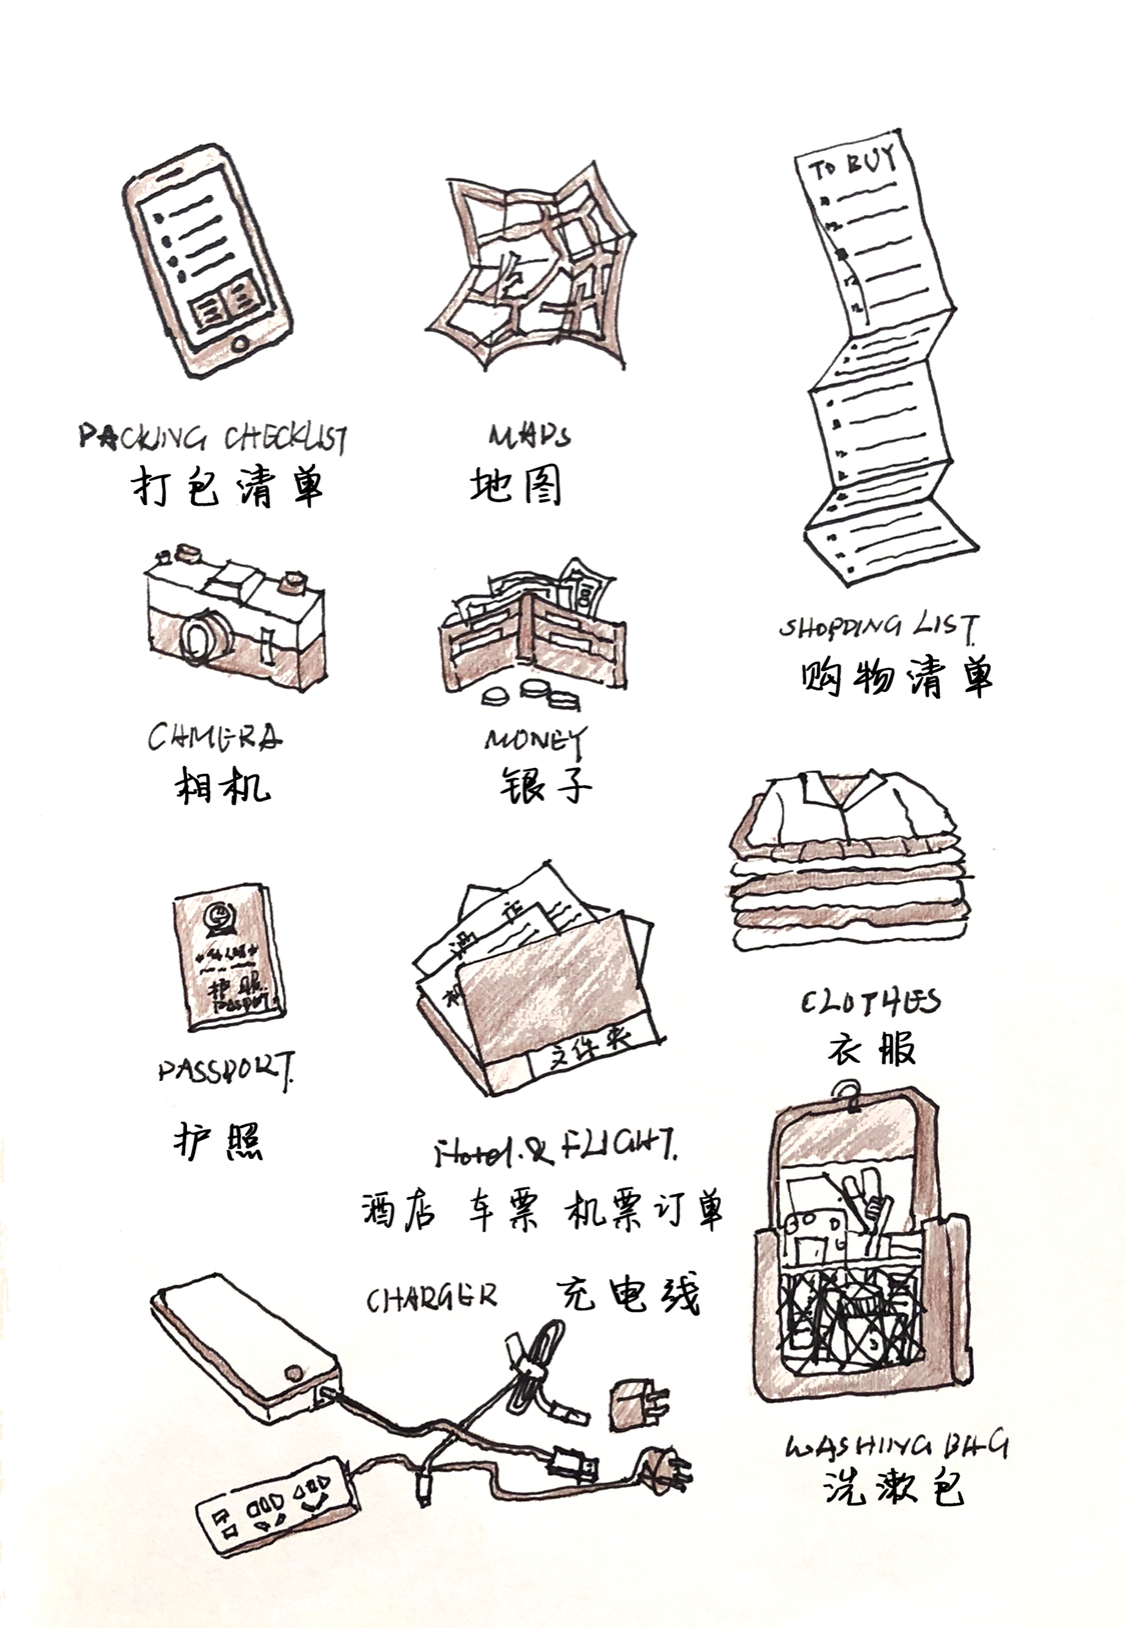 TO BUY
PACKING CHECKLIST
打包清单
MAPS
地图
SHOPPING LIST
购物清单
CAMERA
相机
MONEY
银子
CLOTHES
衣服
护照
PASSPORT
PASSPORT.
护照
酒店
机
文件夹
Hotel & FLIGHT.
酒店 车票 机票订单
CHARGER 充电线
WASHING BAG
洗漱包